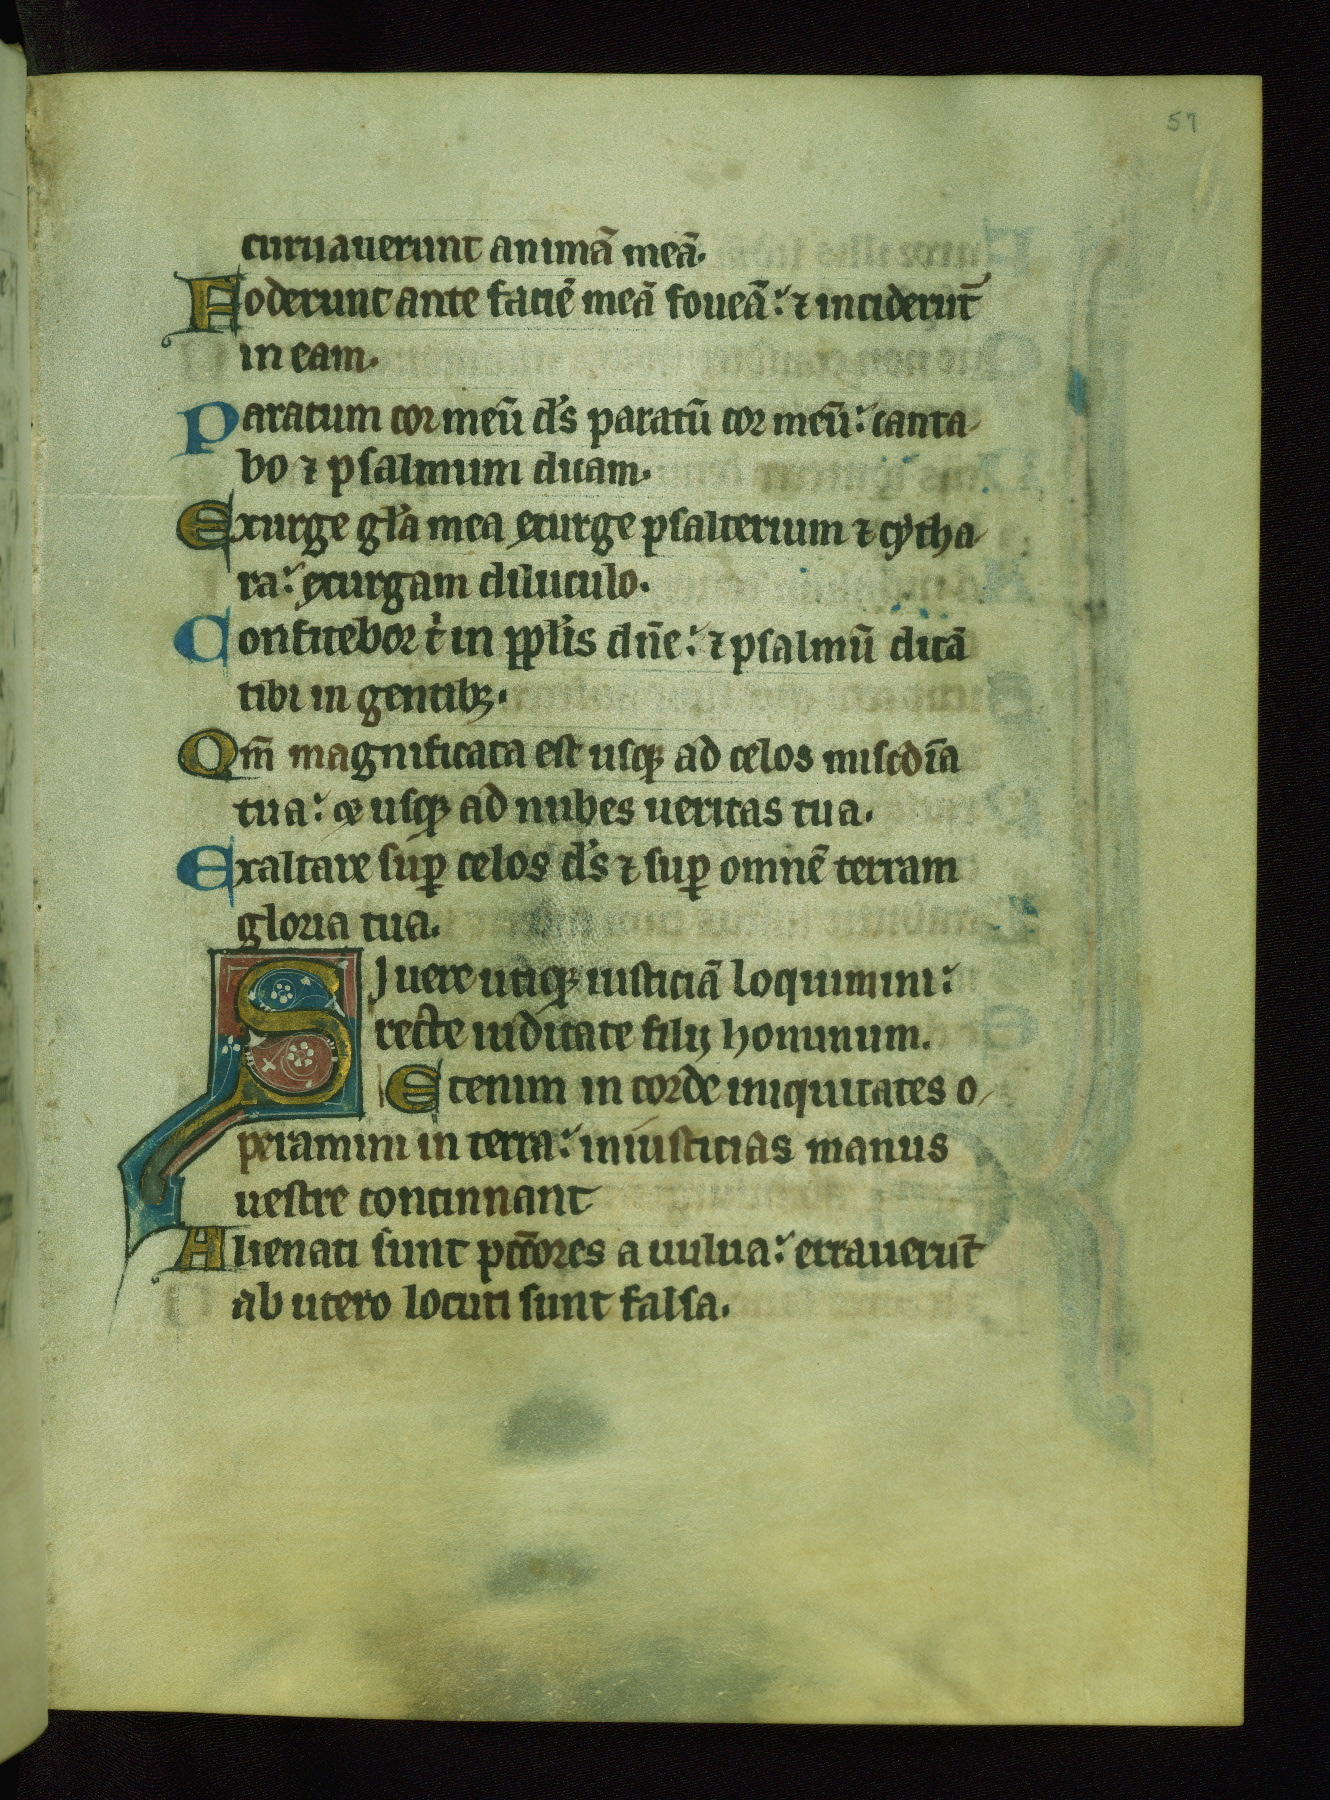 57
curuauerunt animā meā.
Foderunt ante faciē meā foueā: ⁊ inciderūt
in eam.
Paratum cor meū ds̄ paratū cor meū: canta
bo ⁊ psalmum dicam.
Exurge gl̄a mea exurge psalterium ⁊ cytha
ra: exurgam diluculo.
Confitebor t̄ in ppl̄is dn̄e: ⁊ psalmū dicā
tibi in gentibꝫ.
Qm̄ magnificata est usqꝫ ad celos miscdīa
tua: et usqꝫ ad nubes ueritas tua.
Exaltare suꝑ celos ds̄ ⁊ suꝑ omnē terram
gloria tua.
SI uere utiqꝫ iusticiā loquimini:
recte iudicate filij hominum.
Etenim in corde iniquitates o
peramini in terra: iniusticias manus
uestre concinnant
Alienati sunt pcc̄ores a uulua: errauerūt
ab utero locuti sunt falsa.